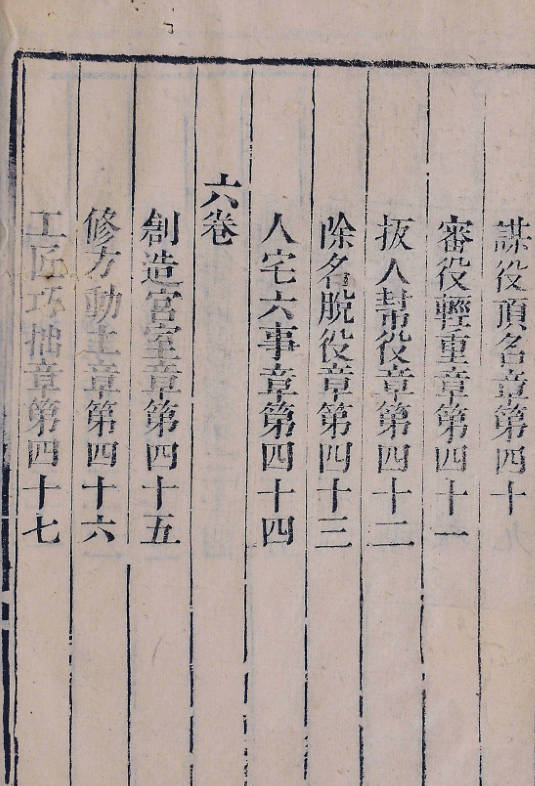 謀役頂名章第四十
審役輕重章第四十一
扳人幫役章第四十二
除名脫役章第四十三
人宅六事章第四十四
六卷
創造宮室章第四十五
修方動土章第四十六
工匠巧拙章第四十七